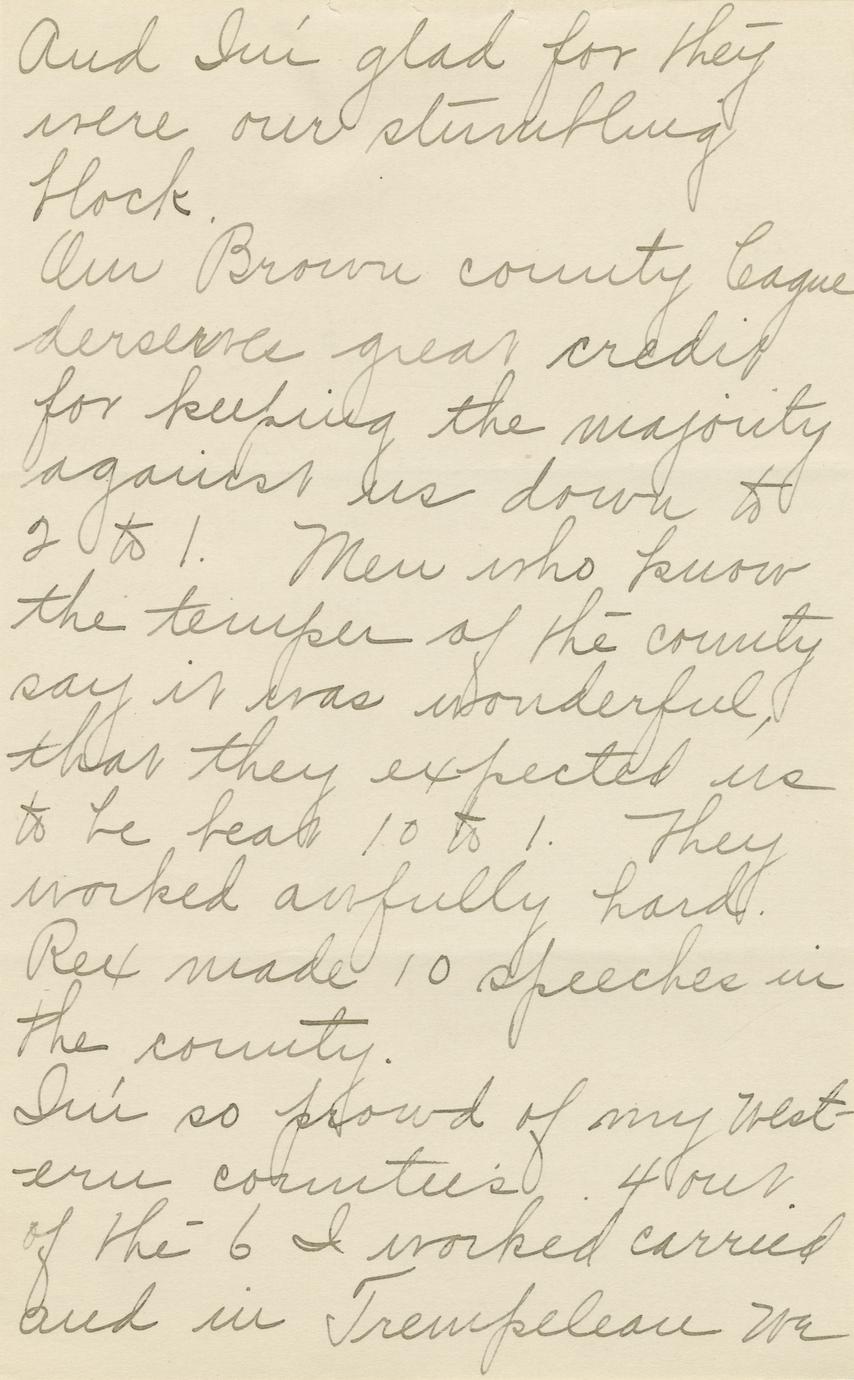 And I'm glad for they
were our stumbling
block.
Our Brown county League
derserves great credit
for keeping the majority
against us down to
2 to 1. Men who know
the temper of the county
say it was wonderful,
that they expected us
to be beat 10 to 1. They
worked awfully hard.
Rex made 10 speeches in
the county.
I'm so prowd of my west-
-ern counties. 4 out
of the 6 I worked carried
and in Trempeleau we